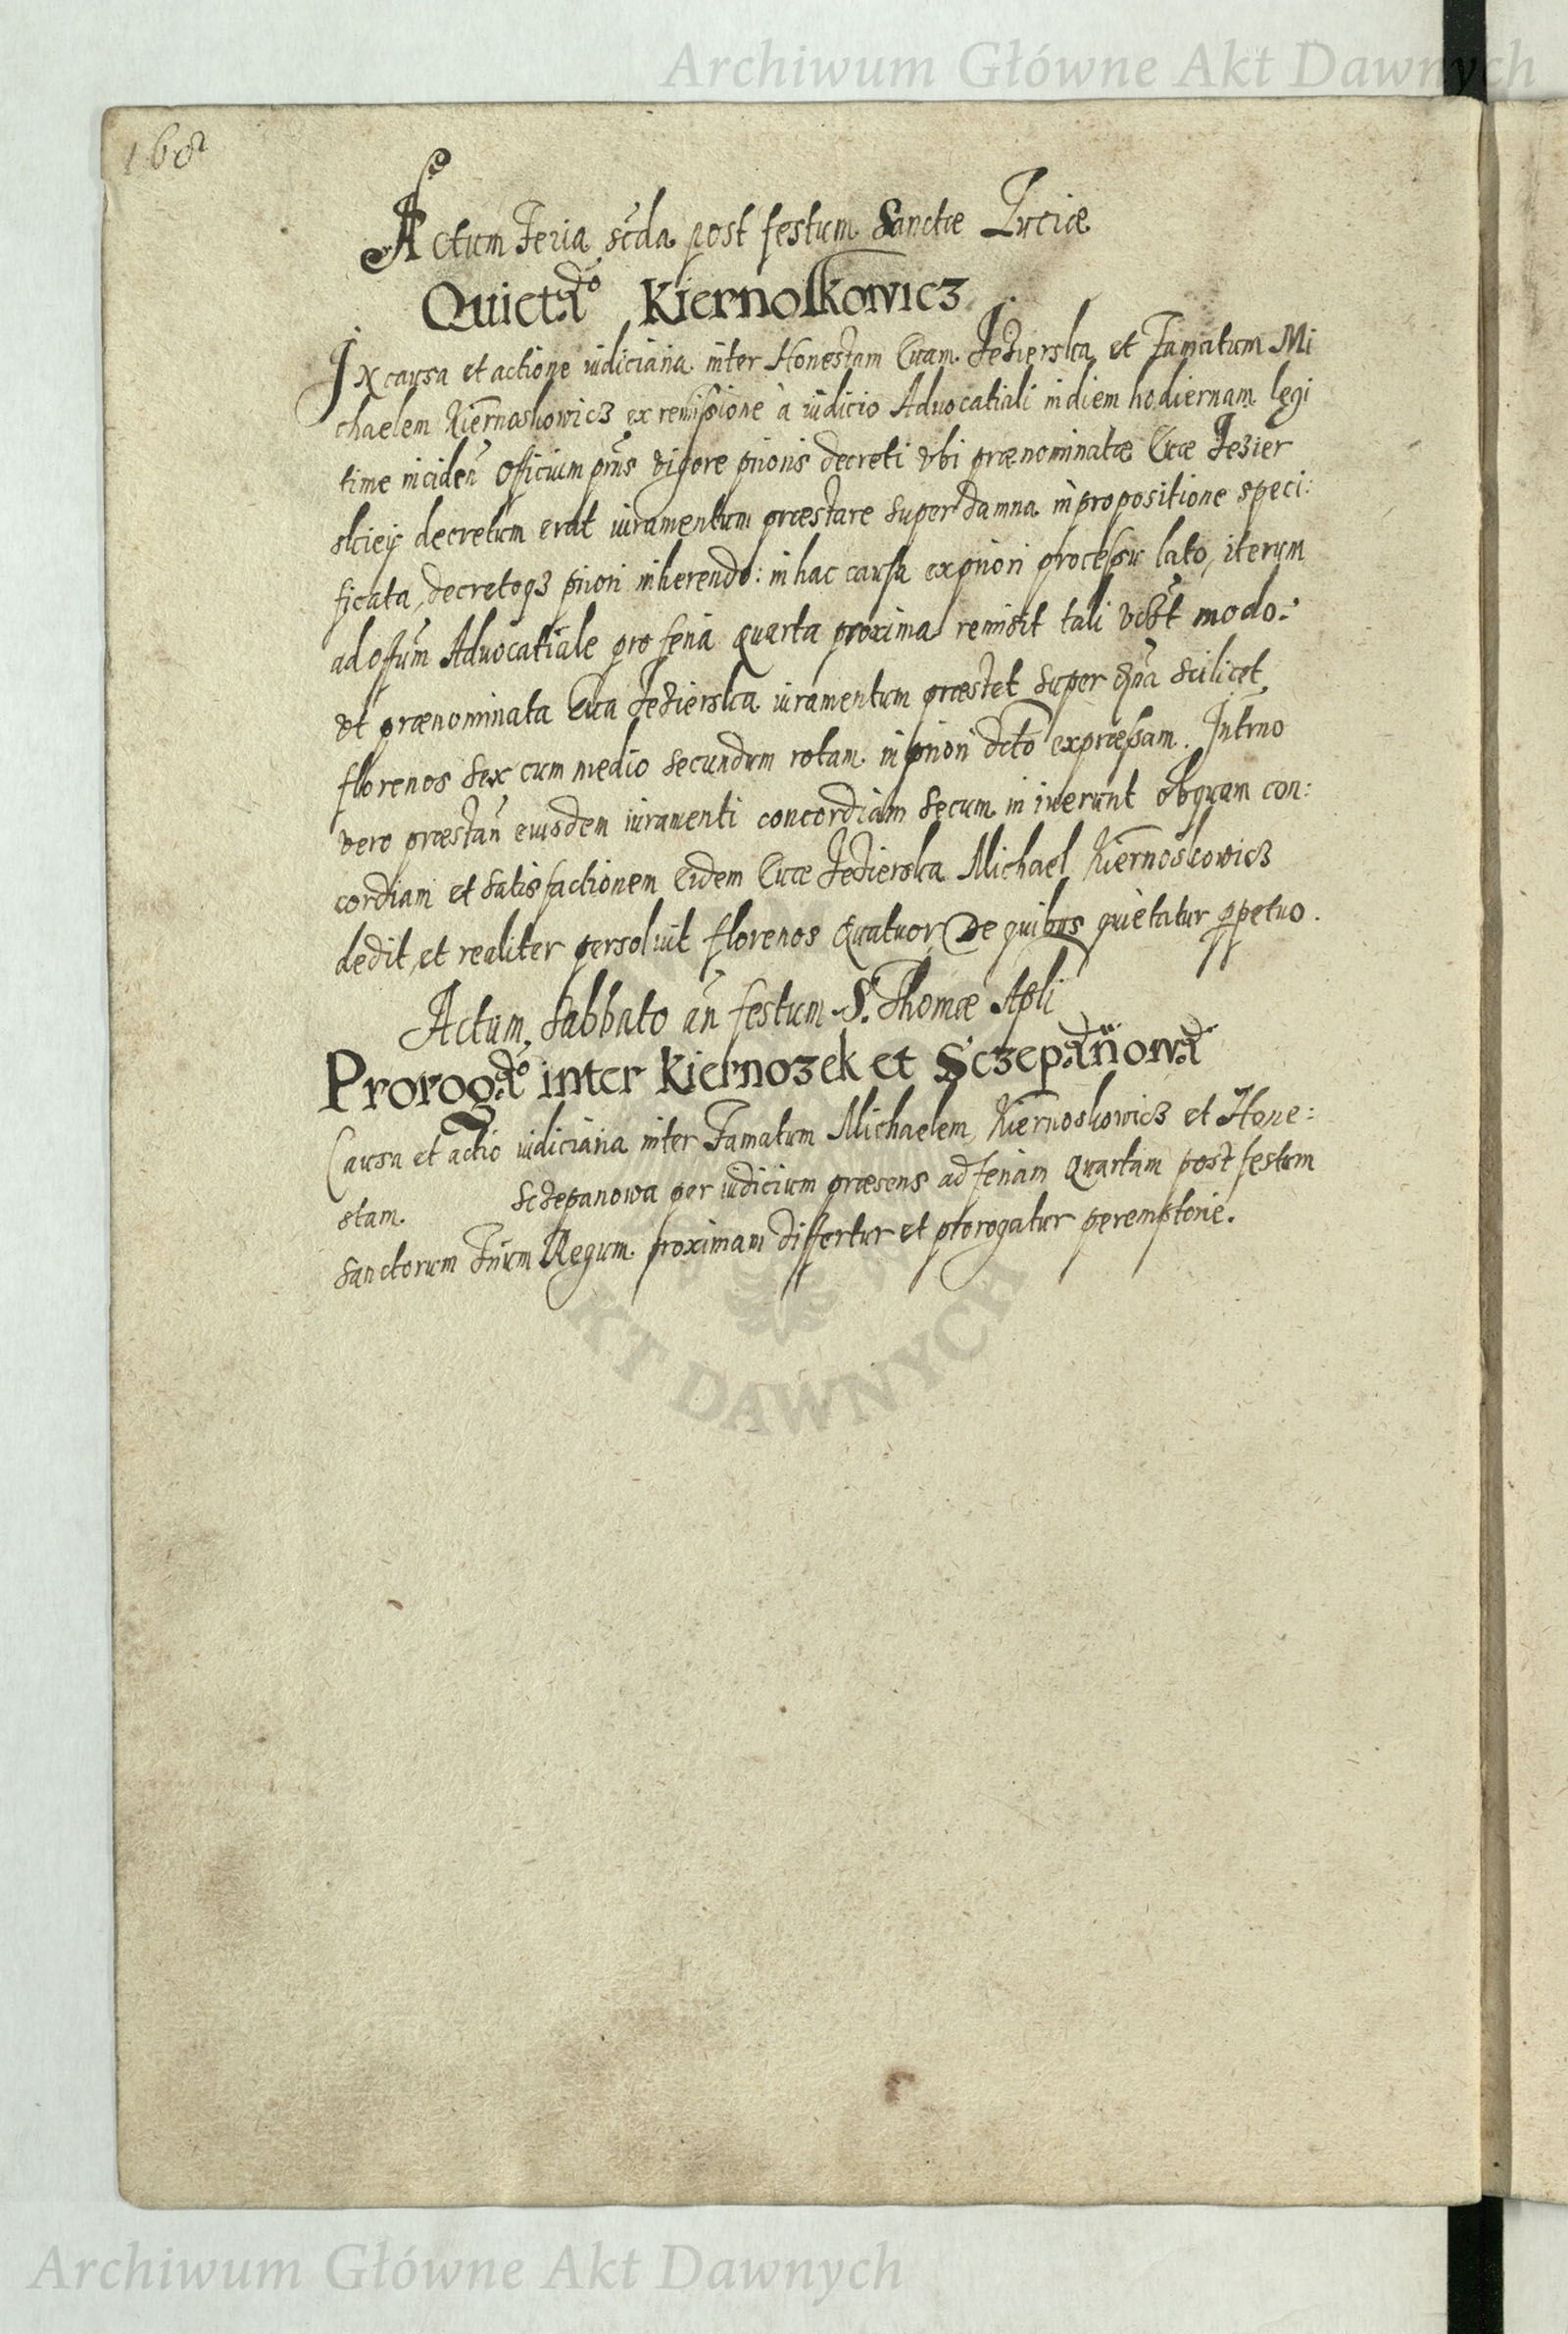 Archiwum Główne Akt Dawnych
168
Actum Feria scda post festum Sanctæ Luciæ
Quietao Kiernoskowicz
In causa et actione iudiciaria inter Honestam Evam Jezierska et Famatum Mi
chaelem Kiernoskowicz ex remissione à iudicio Advocatiali in diem hodiernam legi
time inciden̄ Officium pn̄s vigore prioris decreti vbi prænominatæ Evæ Jezier
skiey decretum erat iuramentum præstare super damna in propositione speci:
ficata, decretoqз priori inherendo: in hac causa ex priori processu lato, iterum
ad offm̄ Advocatiale pro feria quarta proxima remisit tali modo:
vt prænominata Eva Jezierska iuramentum præstet super scilicet
florenos sex cum medio secundum rotam in priori dcto expræssam. Interno
vero præstan̄ eiusdem iuramenti concordiam secum in iverunt ob quam con:
cordiam et satisfactionem Eidem Evæ Jezierska Michael Kiernoskowicz
dedit, et realiter persolvit florenos quatuor De quibus quietatur ppetuo.
Actum Sabbato an̄ festum S. Thomæ Apli
Prorogao inter Kiernozek et Sczepanowa
Causa et actio iudiciaria inter Famatum Michaelem Kiernoskowicz et Hone:
stam. Sczepanowa per iudicium præsens ad feriam quartam post festum
sanctorum Trium Regum proximam differtur et prorogatur peremptorie.
AKT DAWNYCH
Archiwum Główne Akt Dawnych